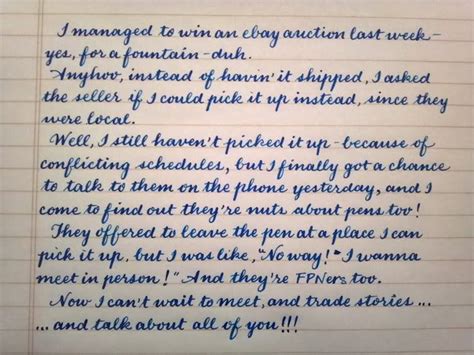 I managed to win an ebay auction last week-
yes, for a fountain-duh.
Anyhoo, instead of havin' it shipped, I asked
the seller if I could pick it up instead, since they
were local.
Well, I still haven't picked it up-because of
conflicting schedules, but I finally got a chance
to talk to them on the phone yesterday, and I
come to find out they're nuts about pens too!
They offered to leave the pen at a place I can
pick it up, but I was like, "No way!" I wanna
meet in person!" And they're FPNers too.
Now I can't wait to meet, and trade stories...
... and talk about all of you!!!